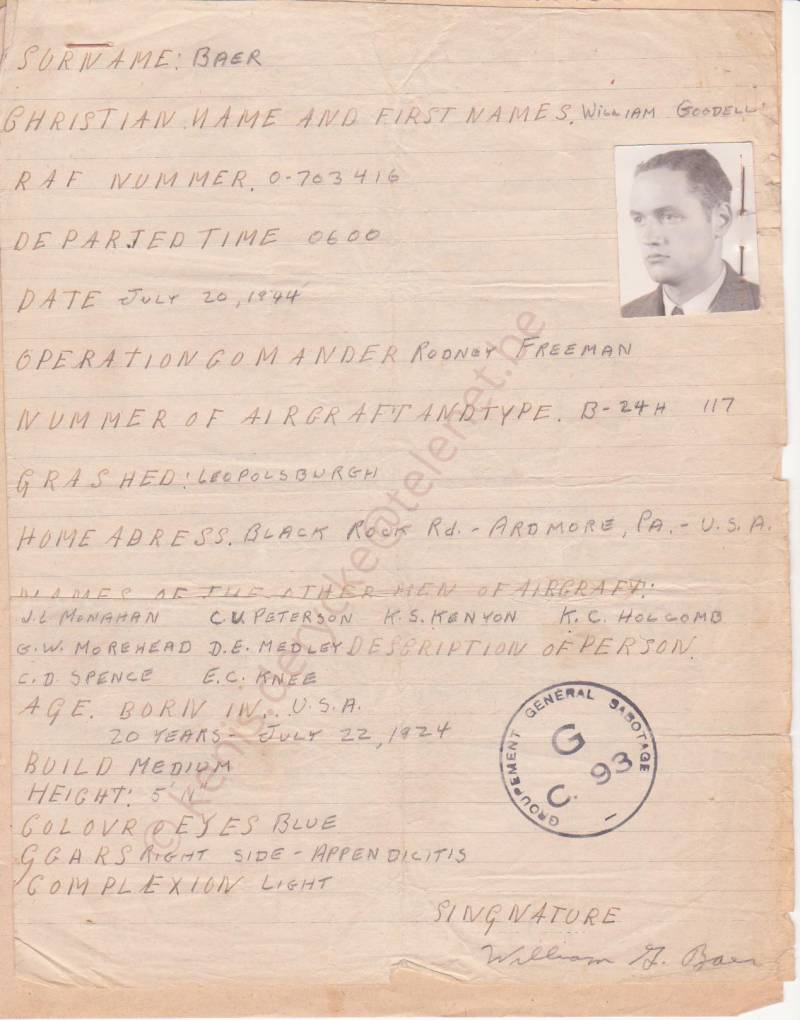 SURNAME: BAER
CHRISTIAN NAME AND FIRST NAMES. WILLIAM GOODELL
RAF NUMMER. O-703416
DEPARTED TIME 0600
DATE JULY 20, 1944
OPERATION COMANDER RODNEY FREEMAN
NUMMER OF AIRGRAFT AND TYPE. B-24H 117
GRASHED: LEOPOLSBURGH
HOME ADRESS. BLACK ROCK Rd. - ARDMORE, PA. - U.S.A.
NAMES OF THE OTHER MEN OF AIRGRAFT:
J.L MONAHAN C.V. PETERSON K.S. KENYON K.C. HOLCOMB
G.W. MOREHEAD D.E. MEDLEY DESGRIPTION OF PERSON.
C.D. SPENCE E.C. KNEE
AGE. BORN IN.. U.S.A.
20 YEARS - JULY 22, 1924
BUILD MEDIUM
HEIGHT: 5'
COLOVR O EYES BLUE
GGARS RIGHT SIDE - APPENDICITIS
COMPLEXION LIGHT
SINGNATURE
William G. Baer
GROUPEMENT GENERAL SABOTAGE
G
C. 93
@telenet.be